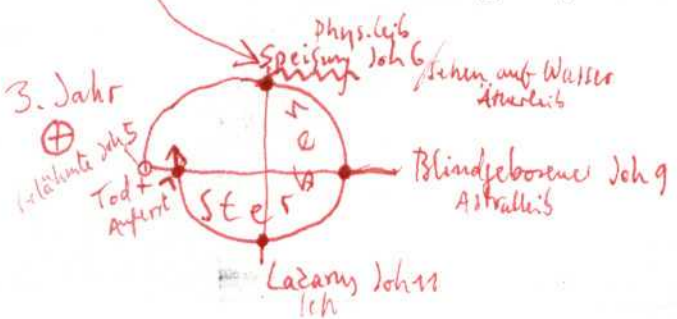 Phys. Leib
Speisung Joh 6
Gehen auf Wasser
Ätherleib
3. Jahr
Gelähmte Joh 5
Tod +
Auferst
Sterben
Blindgeborener Joh 9
Astralleib
Lazarus Joh 11
Ich